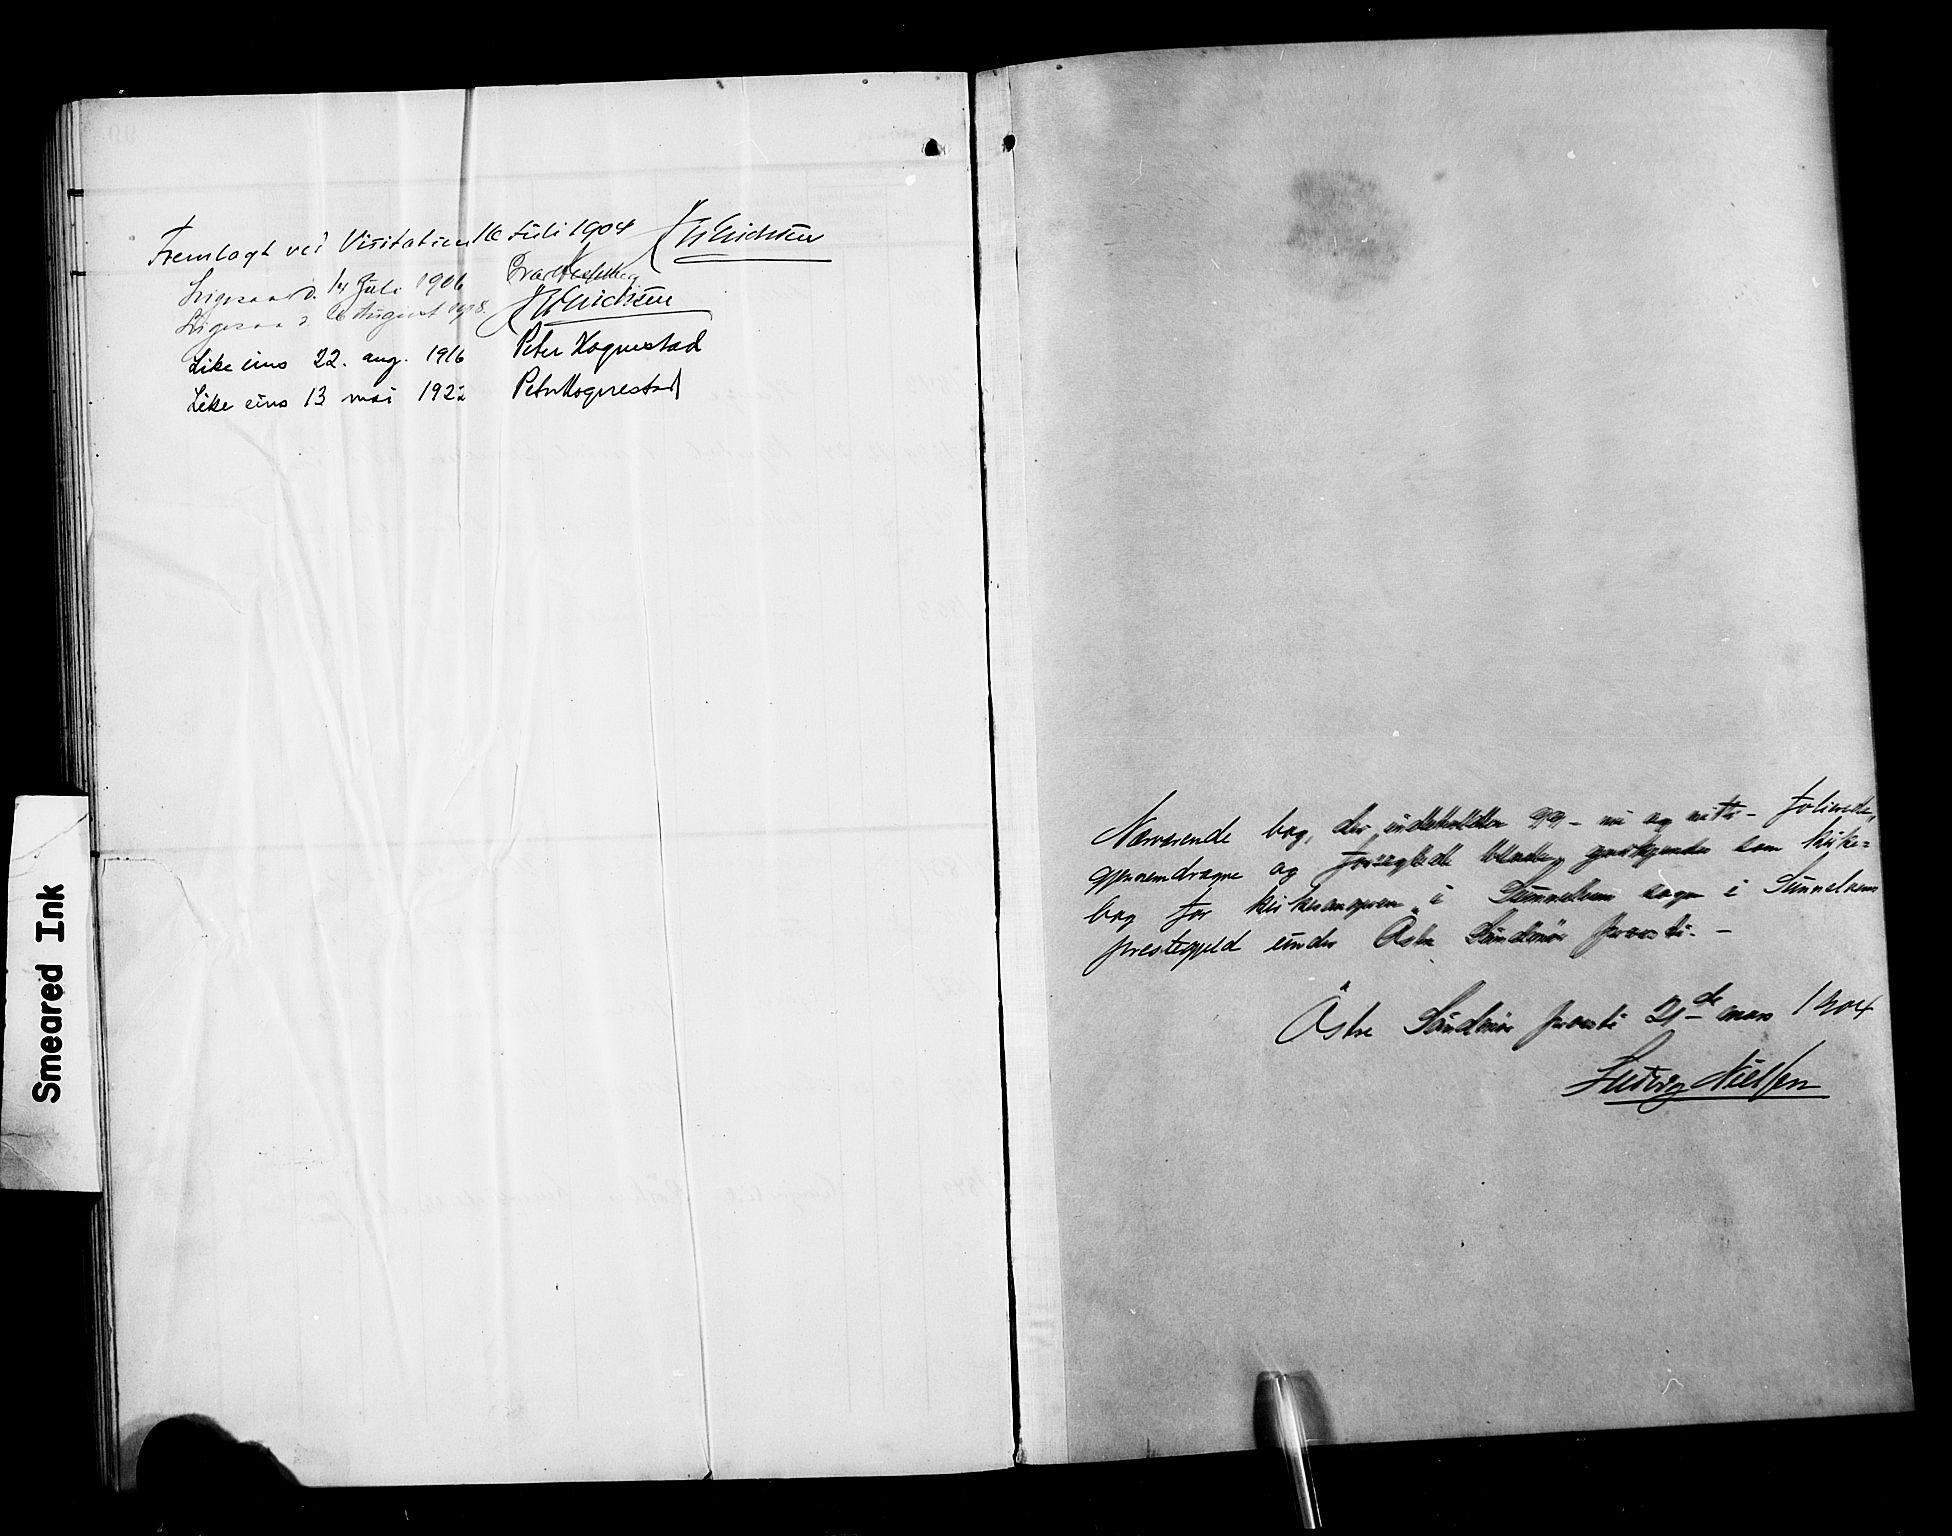 Fremlagt ved Visitation 16 Juli 1904 J W Erichsen
Ligesaa d. 14 Juli 1906
Ligesaa d. 6 August 1908. J W Erichsen
Like eins 22. aug. 1916 Peter Hognestad
Like eins 13 mai 1922 Peter Hognestad
Smeared Ink
Nærværende bog, der indeholder 99 - ni og nitti - folierede,
gjennemdragne og forseglede blade, som kirke=
bog for kirkesangeren i Sunnelven sogn i Sunnelvens
prestegjeld under Østre Søndmør provsti. -
Østre Søndmør provsti 21de mars 1904
Ludvig Nielsen